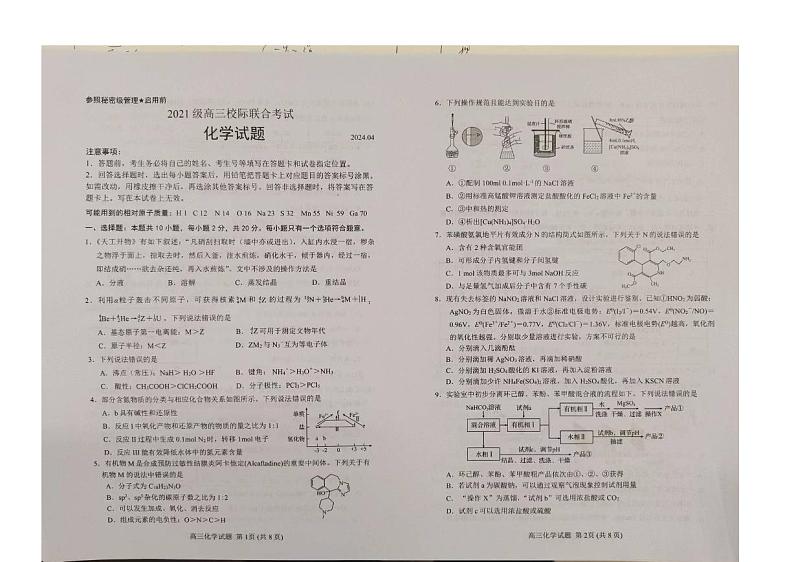 参照秘密级管理★启用前
2021级高三校际联合考试
化学试题
2024.04
注意事项：
1．答题前，考生务必将自己的姓名、考生号等填写在答题卡和试卷指定位置。
2．回答选择题时，选出每小题答案后，用铅笔把答题卡上对应题目的答案标号涂黑。
如需改动，用橡皮擦干净后，再选涂其他答案标号。回答非选择题时，将答案写在答
题卡上。写在本试卷上无效。
可能用到的相对原子质量：H 1 C 12 N 14 O 16 Na 23 S 32 Mn 55 Ni 59 Ga 70
一、选择题：本题共10小题，每小题2分，共20分。每小题只有一个选项符合题意。
1.《天工开物》有如下叙述，“凡硝刮扫时（墙中亦或迸出），入缸内水浸一宿，秽杂
之物浮于面上，掠取去时，然后入釜，注水煎炼，硝化水干，倾于器内，经过一宿，
即结成硝……欲去杂还纯，再入水煎炼”。文中不涉及的操作方法是
A．分液 B．溶解 C．蒸发结晶 D．重结晶
2．利用α粒子轰击不同原子，可获得核素
下列说法错误的是
A．基态原子第一电离能：M＞Z
可用于测定文物年代
C．原子半径：M＜Z
D．ZM₂与N₂
互为等电子体
3．下列说法错误的是
A．沸点（常压）：NaH＞H₂O＞HF B．键角：NH₄⁺＞H₃O⁺＞NH₃
C．酸性：CH₃COOH＞ClCH₂COOH D．分子极性：PCl₃＞PCl₅
4．部分含氮物质的分类与相应化合价关系如图所示，下列说法错误的是
A．b具有碱性和还原性
B．反应Ⅰ中氧化产物和还原产物的物质的量之比为1∶1
C．反应Ⅱ过程中生成0.1mol N₂时，转移1mol电子
D．反应Ⅲ能有效降低水体中的氮元素含量
单质
盐
氧化物
a b
-3 -2 0 +2 +3 +5
5．有机物M是合成预防过敏性结膜炎阿卡他定(Alcaftadine)的重要中间体。下列关于有
机物M的说法中错误的是
B．sp³、sp²杂化的碳原子数之比为1∶2
C．可以发生加成、氧化、消去反应
D．组成元素的电负性：O＞N＞C＞H
高三化学试题 第1页(共8页)
6．下列操作规范且能达到实验目的是
① ② ③ ④
A．①配制100ml 0.1mol·L⁻¹的NaCl溶液
B．②用标准高锰酸钾溶液测定盐酸酸化的FeCl₂溶液中Fe²⁺的含量
C．③中和热的测定
D．④析出[Cu(NH₃)₄]SO₄·H₂O
7．苯磺酸氨氯地平片有效成分N的结构简式如图所示，下列关于N的说法错误的是
A．含有2种含氧官能团
B．可形成分子内氢键和分子间氢键
C．1 mol该物质最多可与3mol NaOH反应
D．与足量氢气加成后分子中含有7个手性碳
8．现有失去标签的NaNO₂溶液和NaCl溶液，设计实验进行鉴别。已知①HNO₂为弱酸；
AgNO₂为白色固体，微溶于水②标准电极电势：Eᶿ(I₂/I⁻)＝0.54V，Eᶿ(NO₂⁻/NO)＝
0.96V，Eᶿ(Fe³⁺/Fe²⁺)＝0.77V，Eᶿ(Cl₂/Cl⁻)＝1.36V，标准电极电势(Eᶿ)越高，氧化剂
的氧化性越强。分别取少量溶液进行实验，方案不可行的是
A．分别滴入几滴酚酞
B．分别滴加稀AgNO₃溶液，再滴加稀硝酸
C．分别滴加H₂SO₄酸化的KI溶液，再加入淀粉溶液
D．分别滴加少许NH₄Fe(SO₄)₂溶液，加入H₂SO₄酸化，再加入KSCN溶液
9．实验室中初步分离环己醇、苯酚、苯甲酸混合液的流程如下。下列说法错误的是
NaHCO₃溶液 试剂a 水 MgSO₄
混合溶液 有机相Ⅰ 有机相Ⅱ 洗涤 干燥、过滤 操作X 产品①
水相Ⅱ 试剂b、调节pH 抽滤 产品②
水相Ⅰ 试剂c、调节pH 结晶、过滤、洗涤、干燥 产品③
A．环己醇、苯酚、苯甲酸粗产品依次由①、②、③获得
B．若试剂a为碳酸钠，可以通过观察气泡现象控制试剂用量
C．“操作X”为蒸馏，“试剂b”可选用浓盐酸或CO₂
D．试剂c可以选用浓盐酸或硫酸
高三化学试题 第2页(共8页)